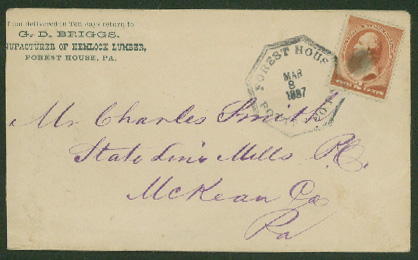 If not delivered in Ten days return to
G. D. BRIGGS.
MANUFACTURER OF HEMLOCK LUMBER,
FOREST HOUSE, PA.
FOREST HOUSE
MAR
8
1887
Mr Charles Smith
State Line Mills P.O.
McKean Co
Pa